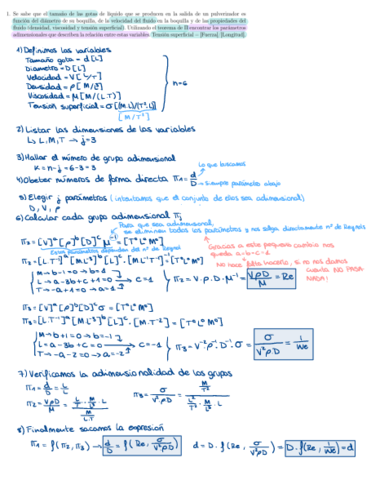 1. Se sabe que el tamaño de las gotas de líquido que se producen en la salida de un pulverizador es
función del diámetro de su boquilla, de la velocidad del fluido en la boquilla y de las propiedades del
fluido (densidad, viscosidad y tensión superficial). Utilizando el teorema de Π encontrar los parámetros
adimensionales que describen la relación entre estas variables. [Tensión superficial = [Fuerza]. [Longitud].
1) Definimos las variables
Tamaño gota = d [L]
Diámetro = D [L]
Velocidad = V [L/T]
Densidad = ρ [M/L³]
Viscosidad = μ [M/(L·T)]
Tensión superficial = σ [(M·L)/(T²·L)]
[M/T²]
n=6
2) Listar las dimensiones de las variables
↳ L, M, T → j=3
3) Hallar el número de grupo adimensional
K = n-j = 6-3 = 3
4) Obtener números de forma directa π1 = d/D
lo que buscamos
→ siempre parámetro abajo
5) Elegir j parámetros (intentamos que el conjunto de ellos sea adimensional)
D, V, ρ
6) Calcular cada grupo adimensional πj
Para que sea adimensional,
se eliminan todos los parámetros y nos salga directamente nº de Reynolds
π2 = [V]ᵃ [ρ]ᵇ [D]ᶜ μ⁻¹ = [T⁰ L⁰ M⁰]
Estos parámetros dependen del nº de Reynol
Gracias a este pequeño cambio nos
queda a=b=c=1
No hace falta hacerlo, si no nos damos
cuenta NO PASA
NADA!
π2 = [L·T⁻¹]ᵃ [M·L⁻³]ᵇ [L]ᶜ · [M·L⁻¹T⁻¹]⁻¹ = [T⁰ L⁰ M⁰]
M → b-1=0 → b=1
L → a-3b+c+1=0 → c=1
T → -a+1=0 → a=1
π2 = V·ρ·D·μ⁻¹ = VρD/μ = Re
π3 = [V]ᵃ [ρ]ᵇ [D]ᶜ σ = [T⁰ L⁰ M⁰]
π3 = [L·T⁻¹]ᵃ [M·L⁻³]ᵇ [L]ᶜ · [M·T⁻²] = [T⁰ L⁰ M⁰]
M → b+1=0 → b=-1
L → a-3b+c=0 → c=-1
T → -a-2=0 → a=-2
π3 = V⁻²·ρ⁻¹·D⁻¹·σ = σ/V²ρD = 1/We
7) Verificamos la adimensionalidad de los grupos
π1 = d/D = L/L
π2 = VρD/μ = L/T · M/L³ · L / M/L·T
π3 = σ/V²ρD = M/T² / L²/T² · M/L³ · L
8) Finalmente sacamos la expresión
π1 = f(π2, π3) → d/D = f(Re, σ/V²ρD) d = D·f(Re, σ/V²ρD) = D·f(Re, 1/We) = d